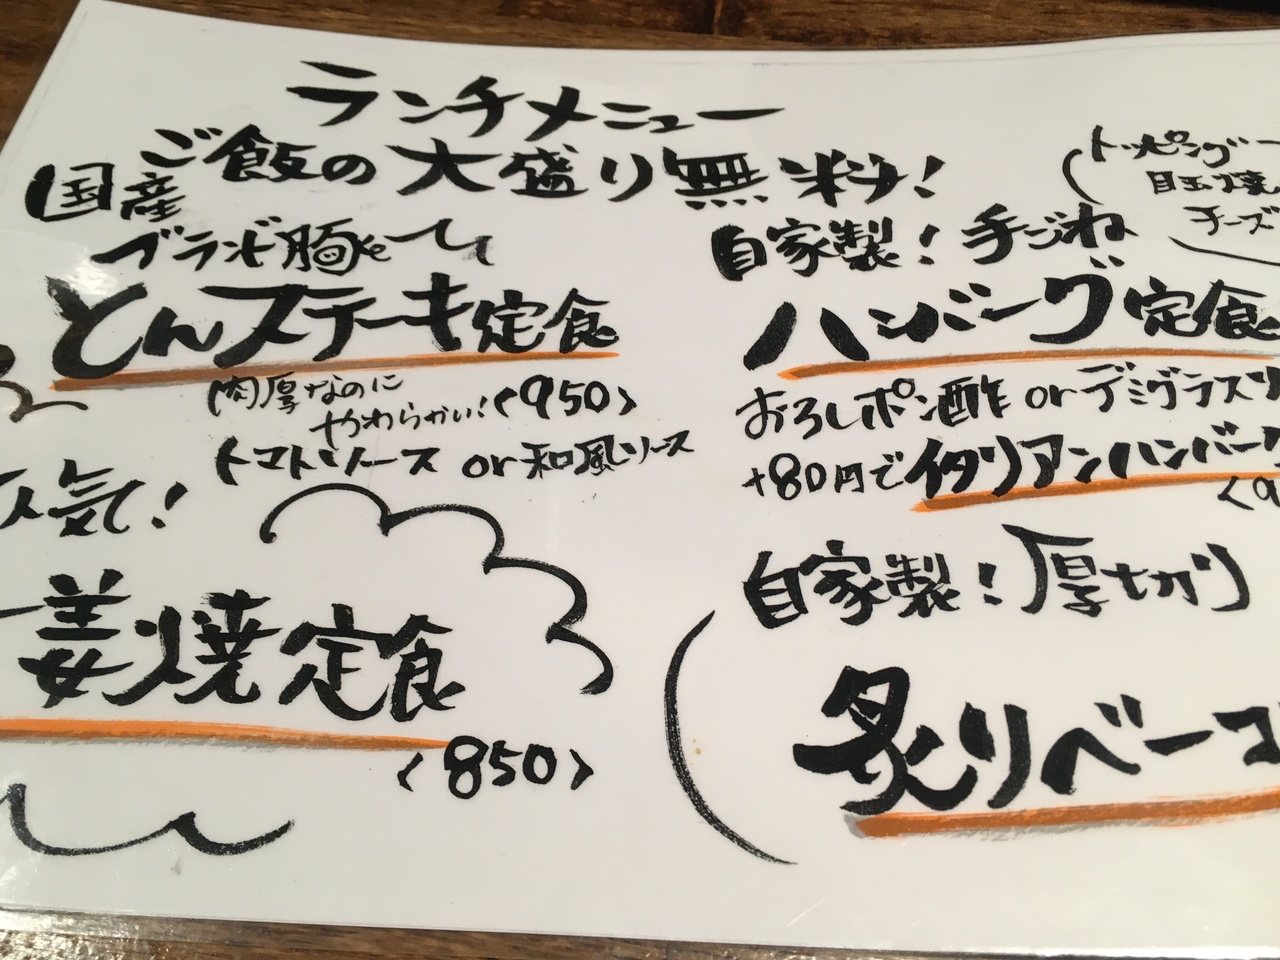 ランチメニュー
ご飯の大盛り無料!
国産
ブランド胸
とんステーキ定食
肉厚なのに
やわらかい!〈950〉
トマトソース or 和風ソース
人気!
姜焼定食
〈850〉
トッピング
目玉焼
チーズ
自家製!手ごね
ハンバーグ定食
おろしポン酢 or デミグラス
+80円でイタリアンハンバーグ
〈9
自家製!厚切り
炙りベーコ